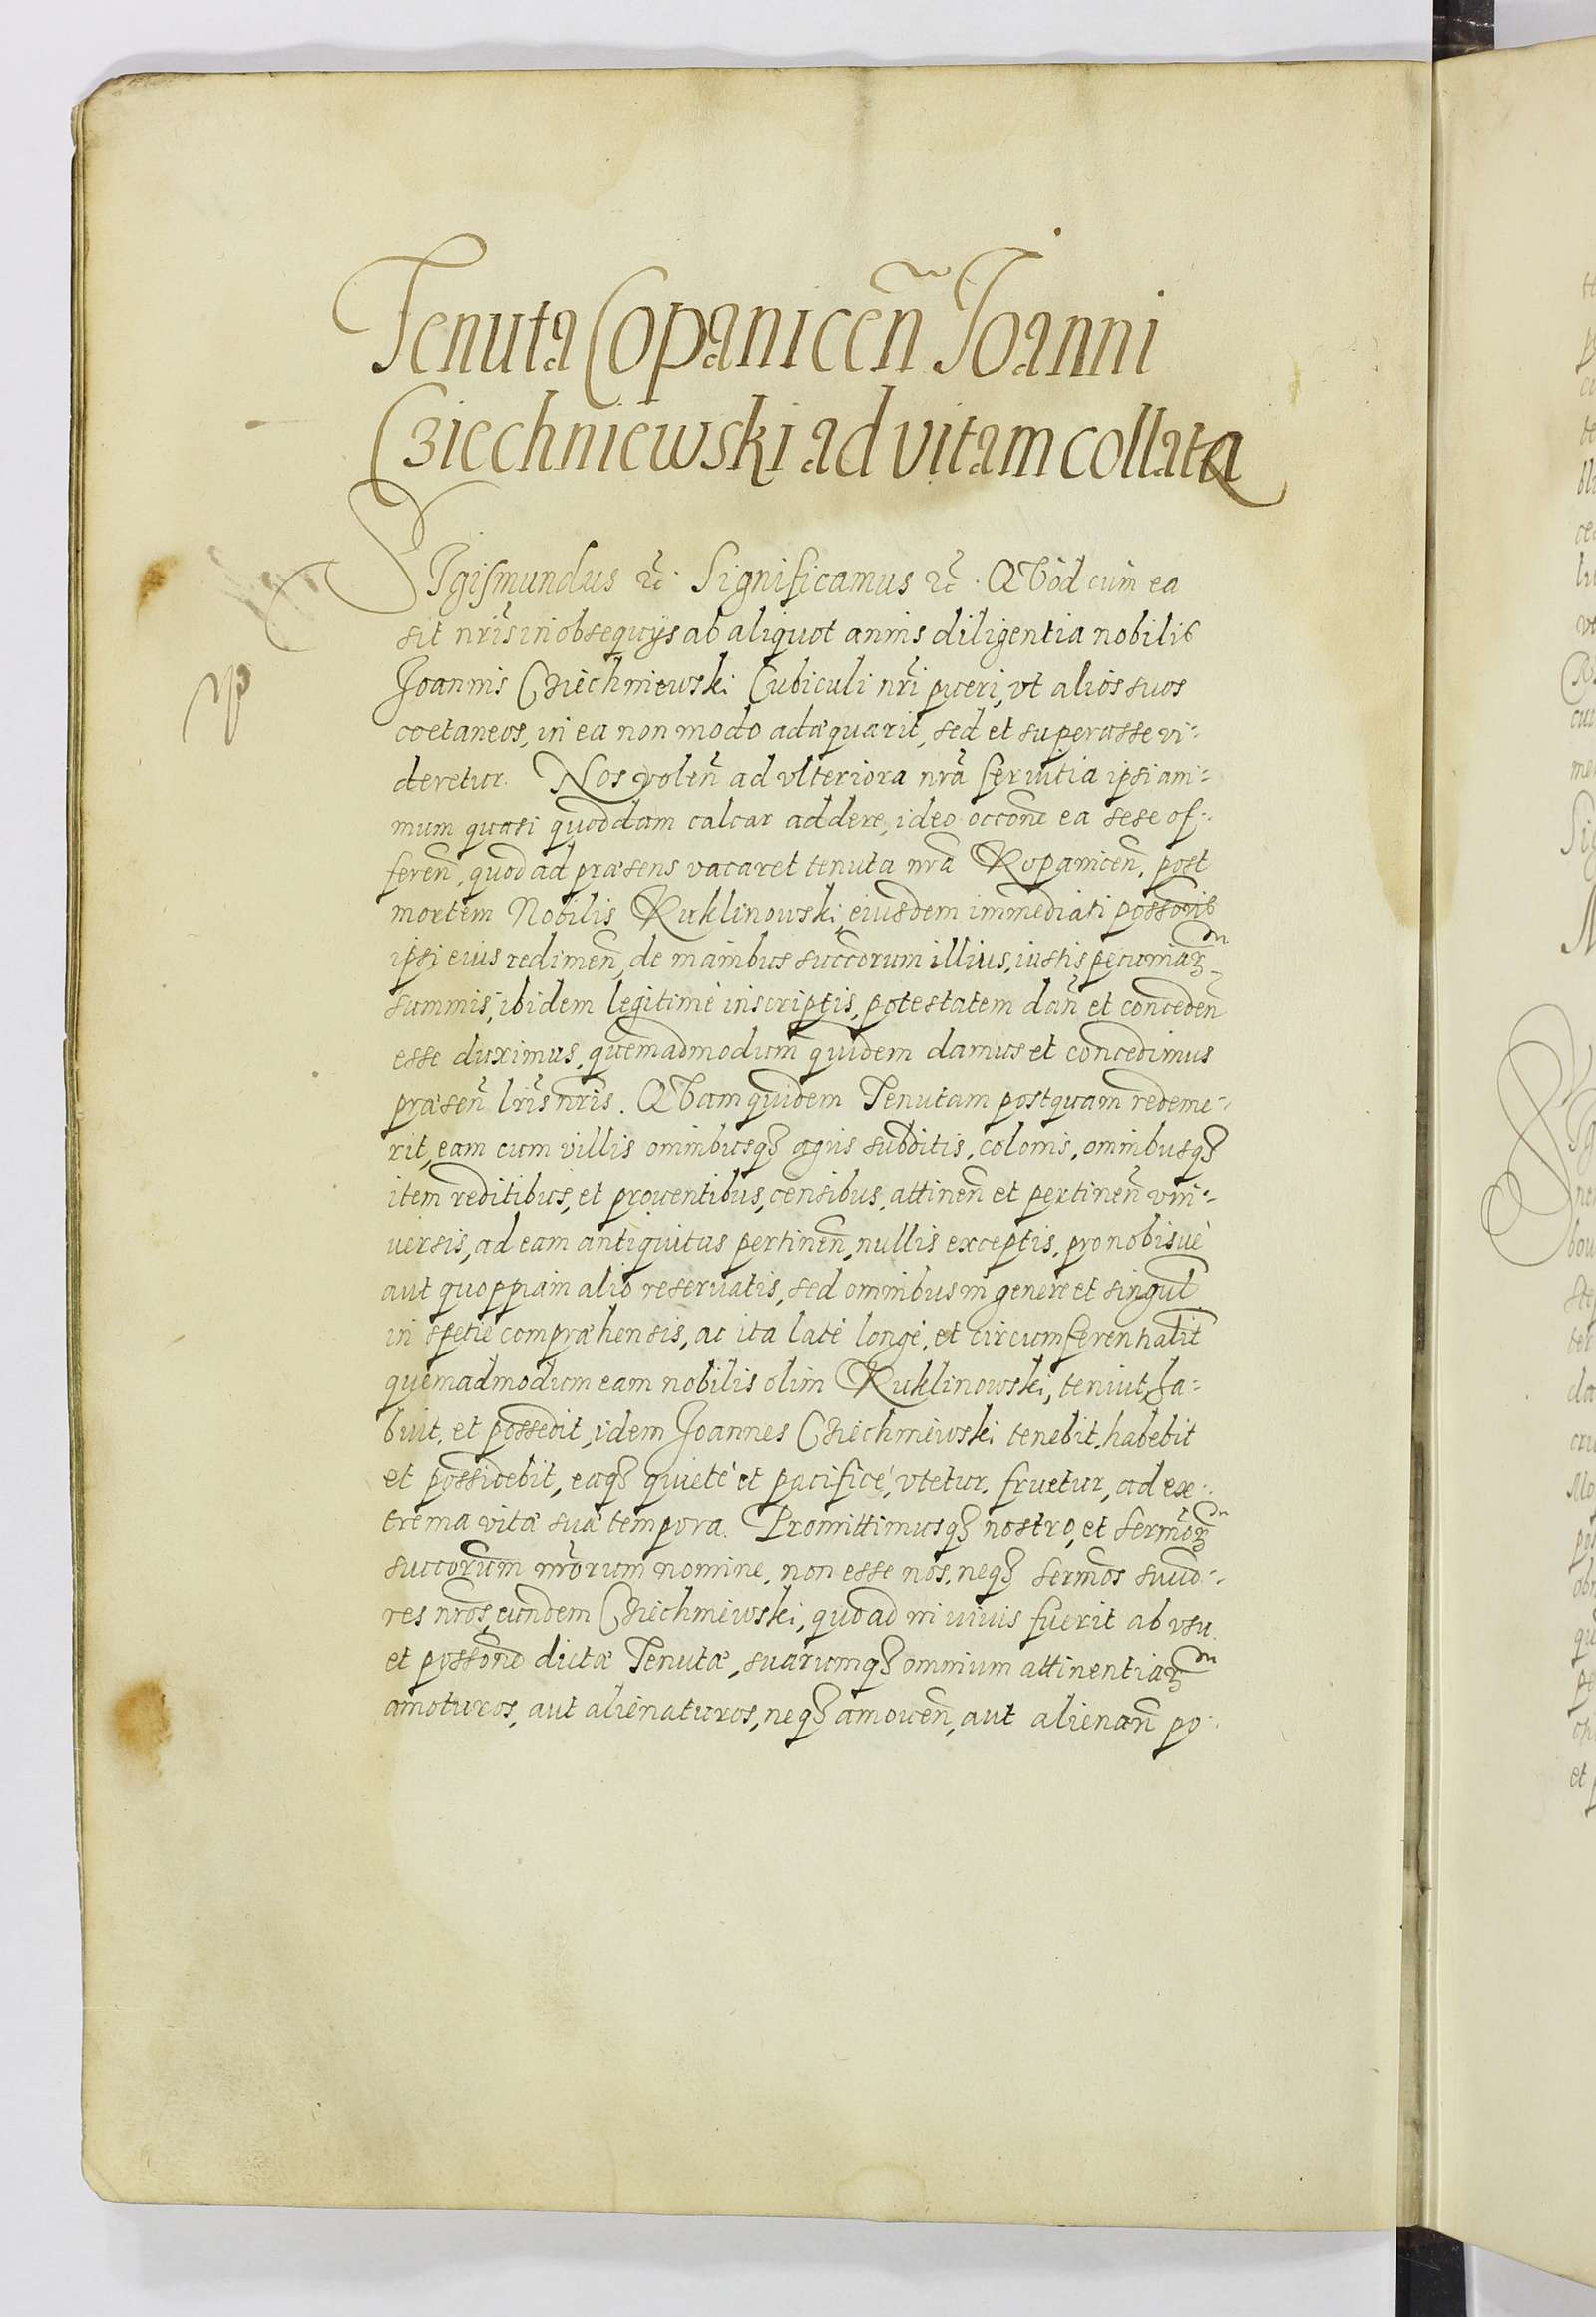 Tenuta Copaniceñ Joanni
Cziechniewski ad vitam collata
SIgismundus &c. Significamus &c. QVòd cum ea
sit nr̃is in obsequijs ab aliquot annis diligentia nobilis
Joannis Cziechniewski Cubiculi nr̃i pueri, vt alios suos
coetaneos, in ea non modo adæquarit, sed et superasse vi-
deretur. Nos voleñ ad vlteriora nr̃a seruitia ipsi ani-
mum quasi quoddam calcar addere, ideo occõne ea sese of-
fereñ, quod ad præsens vacaret tenuta nr̃a Kopaniceñ, post
mortem Nobilis Kuklinowski, eiusdem immediati possoris
ipsi eius redimeñ, de manibus succorum illius, iustis pecuniaꝝ
summis, ibidem legitimè inscriptis, potestatem dañ et concedeñ
esse duximus, quemadmodum quidem damus et concedimus
præseñ lr̃is nr̃is. QVam quidem Tenutam postquam redeme-
rit, eam cum villis omnibusqꝫ agris subditis, colonis, omnibusqꝫ
item reditibus, et prouentibus, censibus, attineñ et pertineñ vni-
uersis, ad eam antiquitus pertineñ, nullis exceptis, pro nobisuè
aut quoppiam alio reseruatis, sed omnibus in genere et singul̃
in spetie compræhensis, ac ita latè longè, et circumferen halit
quemadmodum eam nobilis olim Kuklinowski, tenuit, ha-
buit, et possedit, idem Joannes Cziechniewski tenebit, habebit
et possidebit, eaqꝫ quietè et pacificè, vtetur, fruetur, ad ex-
trema vitæ suæ tempora. Promittimusqꝫ nostro, et Sermõꝝ
succorum nr̃orum nomine, non esse nos, neqꝫ Sermos succo-
res nr̃os, eundem Cziechniewski, quoad in viuis fuerit ab vsu
et possõne dictæ Tenutæ, suarumqꝫ omnium attinentiaꝝ
amoturos, aut alienaturos, neqꝫ amoueñ, aut alienañ po-